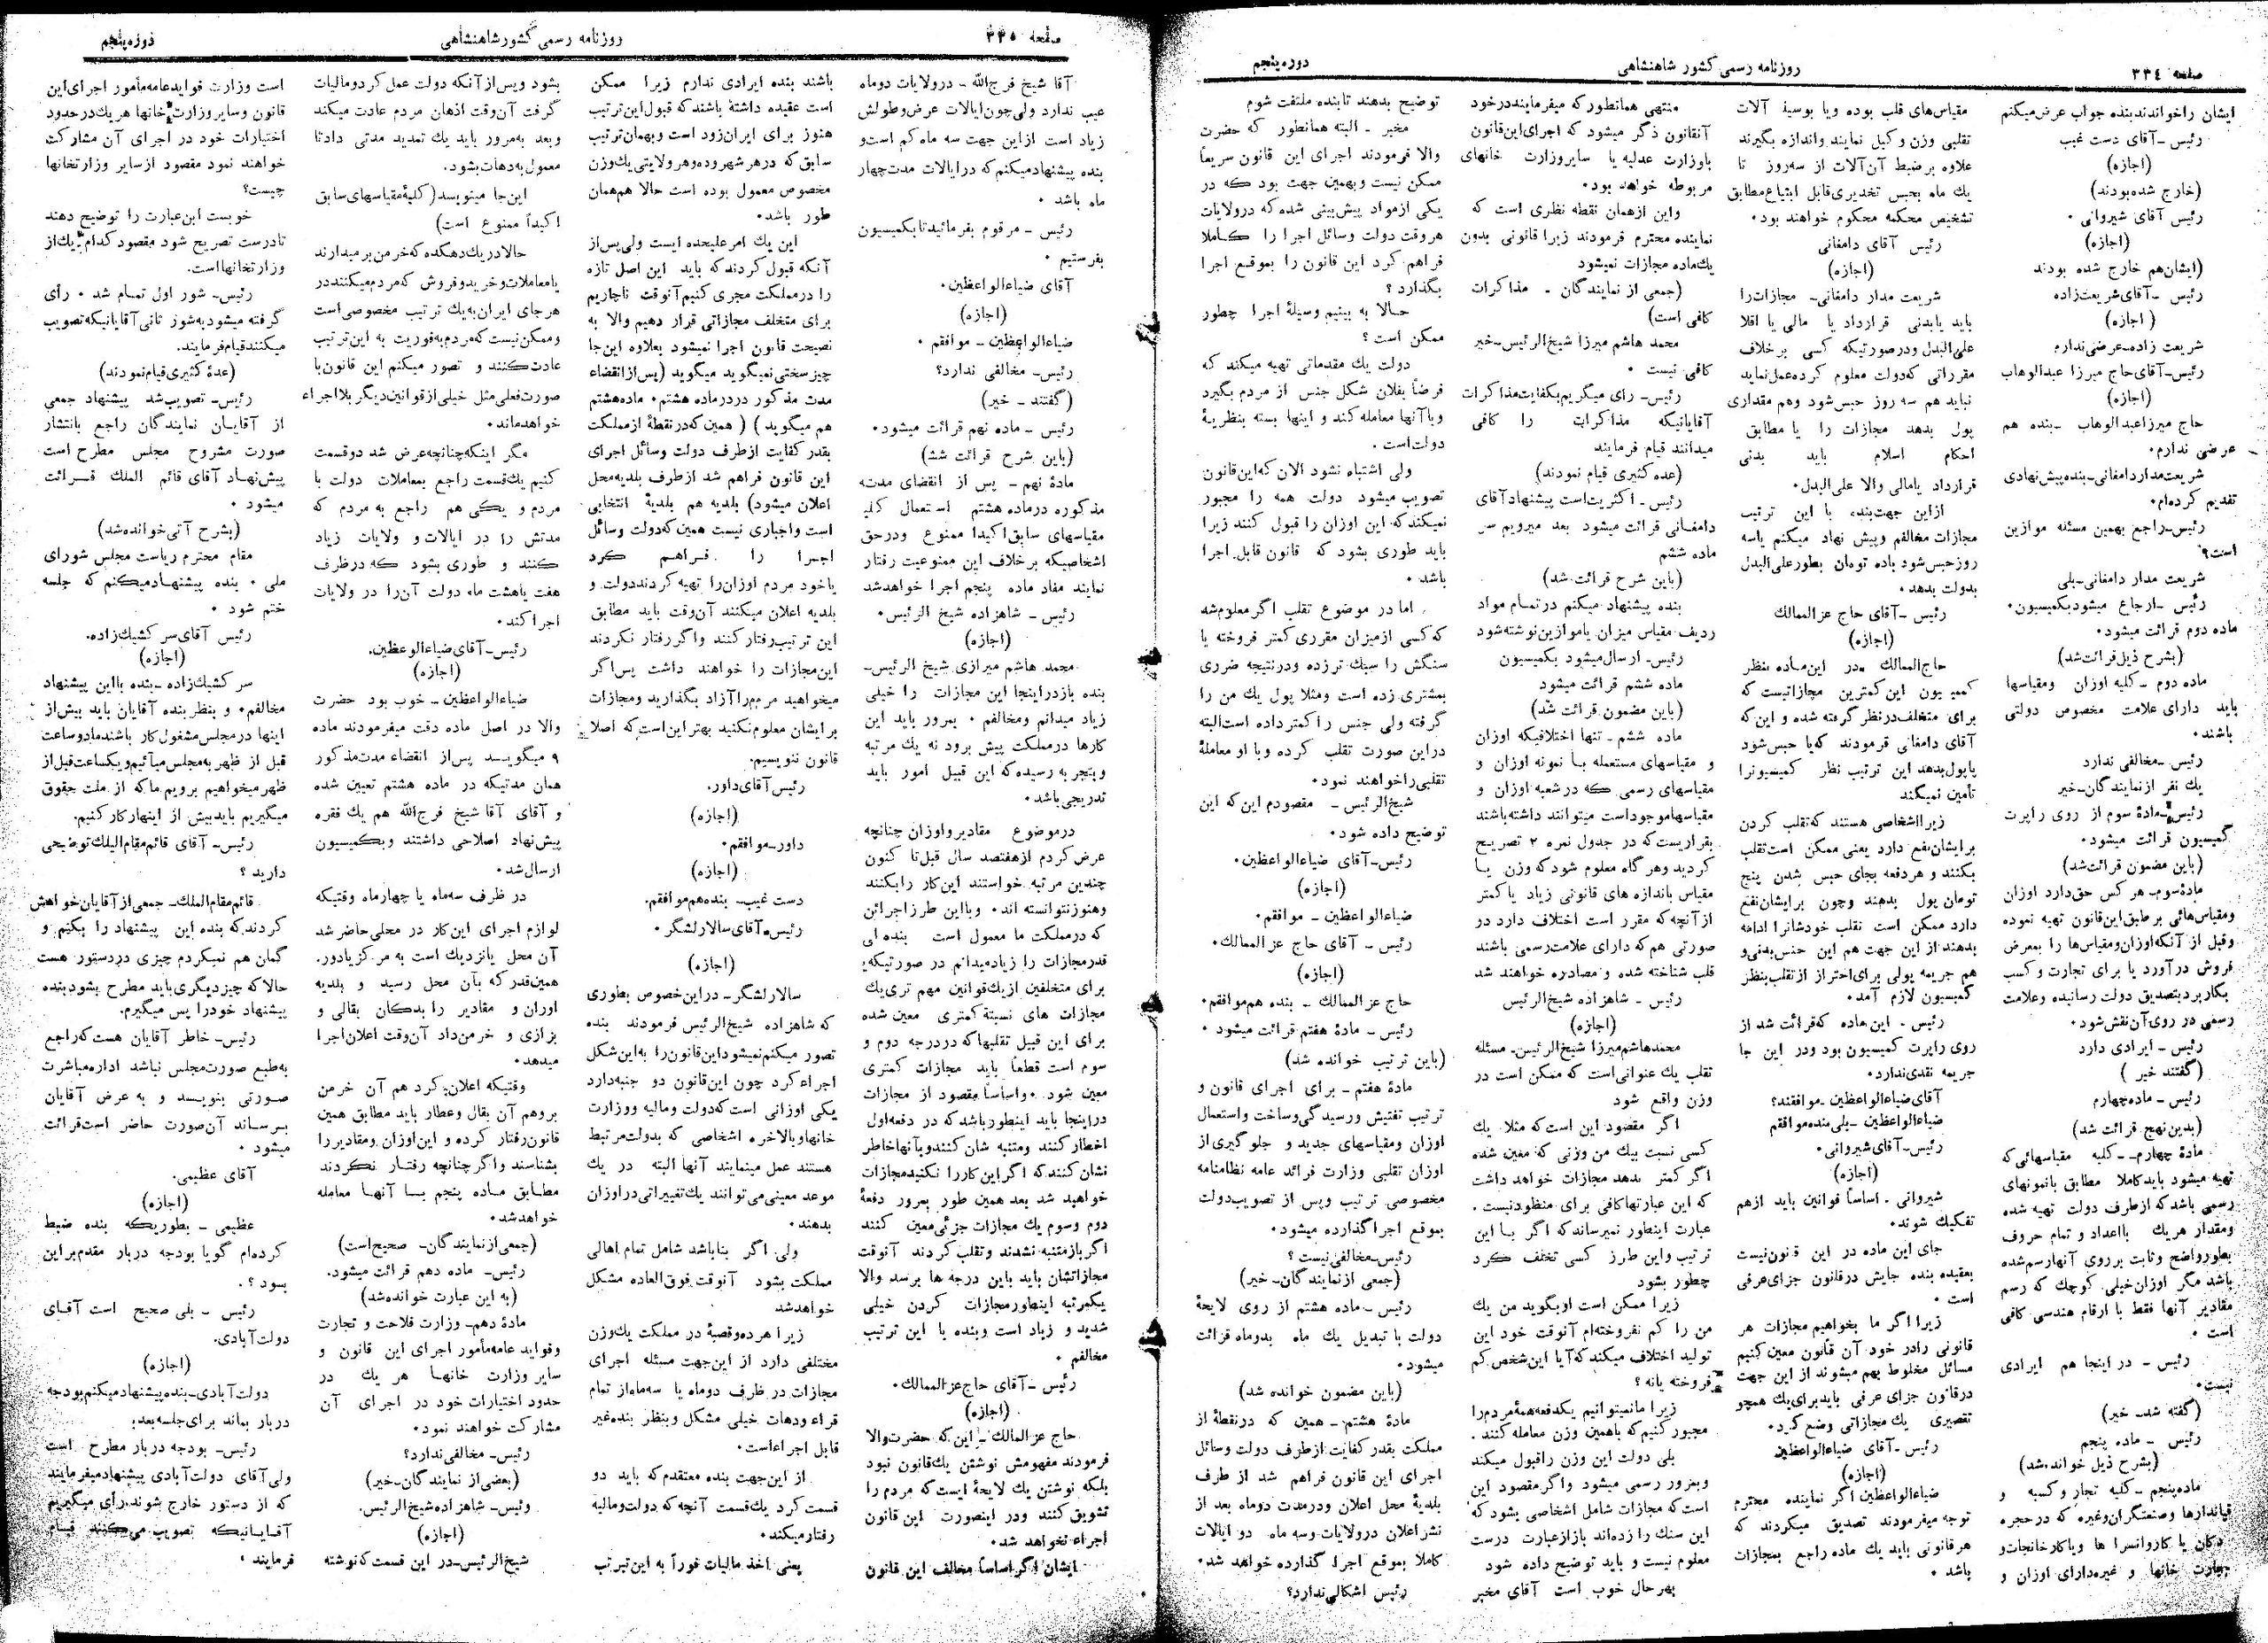 صفحه ۳۳٤
روزنامه رسمی کشور شاهنشاهی
دوره پنجم
ایشان را خواندند بنده جواب عرض میکنم
رئیس ـ آقای دست غیب
(اجازه)
(خارج شده بودند)
رئیس آقای شیروانی ۰
(اجازه)
(ایشان هم خارج شده بودند
رئیس ـ آقای شریعت زاده
(اجازه)
شریعت زاده ـ عرضی ندارم
رئیس ـ آقای حاج میرزا عبدالوهاب
(اجازه)
حاج میرزا عبدالوهاب ـ بنده هم
عرضی ندارم۰
شریعتمدار دامغانی ـ بنده پیش نهادی
تقدیم کرده‌ام۰
رئیس ـ راجع بهمین مسئله موازین
است؟
شریعت مدار دامغانی ـ بلی
رئیس ـ ارجاع میشود بکمیسیون۰
ماده دوم قرائت میشود۰
(بشرح ذیل قرائت شد)
ماده دوم ـ کلیه اوزان ومقیاسها
باید دارای علامت مخصوص دولتی
باشند۰
رئیس ـ مخالفی ندارد
یك نفر از نمایندگان ـ خیر
رئیس ـ مادهٔ سوم از روی راپرت
کمیسیون قرائت میشود۰
(باین مضمون قرائت شد)
مادهٔ سوم ـ هر کس حق دارد اوزان
ومقیاس هائی بر طبق این قانون تهیه نموده
وقبل از آنکه اوزان ومقیاس‌ها را بمعرض
فروش در آورد یا برای تجارت و کسب
بکار برد بتصدیق دولت رسانیده وعلامت
رسمی در روی آن نقش شود۰
رئیس ـ ایرادی دارد
(گفتند خیر)
رئیس ـ ماده چهارم
(بدین نهج قرائت شد)
مادهٔ چهارم ـ کلیه مقیاسهائی که
تهیه میشود باید کاملا مطابق بانمونهای
رسمی باشد که از طرف دولت تهیه شده
ومقدار هر یك بااعداد و تمام حروف
بطور واضح وثابت بر روی آنها رسم شده
باشد مگر اوزان خیلی کوچك که رسم
مقادیر آنها فقط با ارقام هندسی کافی
است ۰
رئیس ـ در اینجا هم ایرادی
نیست۰
(گفته شد ـ خیر)
رئیس ـ ماده پنجم
(بشرح ذیل خوانده شد)
ماده پنجم ـ کلیه تجار وکسبه و
قپاندارها وصنعتگران وغیره که در حجره
دکان یا کاروانسرا ها ویا کارخانجات و
تجارت خانها و غیره دارای اوزان و
مقیاس‌های قلب بوده ویا بوسیلهٔ آلات
تقلبی وزن و کیل نمایند واندازه بگیرند
علاوه بر ضبط آن آلات از سه روز تا
یك ماه بحبس تخدیری قابل ابتیاع مطابق
تشخیص محکمه محکوم خواهند بود۰
رئیس آقای دامغانی
(اجازه)
شریعت مدار دامغانی ـ مجازات را
باید یابدنی قرارداد یا مالی یا اقلا
علی البدل ودر صورتیکه کسی بر خلاف
مقرراتی که دولت معلوم کرده عمل نماید
نباید هم سه روز حبس شود وهم مقداری
پول بدهد مجازات را یا مطابق
احکام اسلام باید بدنی
قرارداد یامالی والا علی البدل۰
ازاین جهت بنده با این ترتیب
مجازات مخالفم وپیش نهاد میکنم یاسه
روز حبس شود یاده تومان بطور علی البدل
بدولت بدهد۰
رئیس ـ آقای حاج عز الممالك
(اجازه)
حاج الممالك ـ در این ماده بنظر
کمیسیون این کمترین مجازاتیست که
برای متخلف در نظر گرفته شده و این که
آقای دامغانی فرمودند که یا حبس شود
یا پول بدهد این ترتیب نظر کمیسیونرا
تأمین نمیکند
زیرا اشخاصی هستند که تقلب کردن
برایشان نفع دارد یعنی ممکن است تقلب
بکنند و هر دفعه بجای حبس شدن پنج
تومان پول بدهند وچون برایشان نفع
دارد ممکن است تقلب خودشانرا ادامه
بدهند از این جهت هم این حبس بدنی و
هم جریمه پولی برای احتراز از تقلب بنظر
کمیسیون لازم آمد۰
رئیس ـ این ماده که قرائت شد از
روی راپرت کمیسیون بود ودر این جا
جریمه نقدی ندارد۰
آقای ضیاء الواعظین ـ موافقند؟
ضیاءالواعظین ـ بلی بنده موافقم
رئیس ـ آقای شیروانی۰
(اجازه)
شیروانی ـ اساساً قوانین باید ازهم
تفکیك شوند۰
جای این ماده در این قانون نیست
بعقیده بنده جایش در قانون جزای عرفی
است ۰
زیرا اگر ما بخواهیم مجازات هر
قانونی را در خود آن قانون معین کنیم
مسائل مخلوط بهم میشوند از این جهت
در قانون جزای عرفی باید برای یك همچو
تقصیری یك مجازاتی وضع کرد۰
رئیس ـ آقای ضیاءالواعظین
(اجازه)
ضیاءالواعظین اگر نماینده محترم
توجه میفرمودند تصدیق میکردند که
هر قانونی باید یك ماده راجع بمجازات
باشد ۰
منتهی همانطور که میفرمایند در خود
آنقانون ذکر میشود که اجرای این قانون
باوزارت عدلیه یا سایر وزارت خانهای
مربوطه خواهد بود۰
واین از همان نقطه نظری است که
نماینده محترم فرمودند زیرا قانونی بدون
یك ماده مجازات نمیشود
(جمعی از نمایندگان ـ مذاکرات
کافی است)
محمد هاشم میرزا شیخ الرئیس ـ خیر
کافی نیست ۰
رئیس ـ رای میگیریم بکفایت مذاکرات
آقایانیکه مذاکرات را کافی
میدانند قیام فرمایند
(عده کثیری قیام نمودند)
رئیس ـ اکثریت است پیشنهاد آقای
دامغانی قرائت میشود بعد میرویم سر
ماده ششم
(باین شرح قرائت شد)
بنده پیشنهاد میکنم در تمام مواد
ردیف مقیاس میزان یا موازین نوشته شود
رئیس ـ ارسال میشود بکمیسیون
ماده ششم قرائت میشود
(باین مضمون قرائت شد)
ماده ششم ـ تنها اختلافیکه اوزان
و مقیاسهای مستعمله با نمونه اوزان و
مقیاسهای رسمی که در شعبه اوزان و
مقیاسها موجود است میتوانند داشته باشند
بقراریست که در جدول نمره ۲ تصریح
گردید وهر گاه معلوم شود که وزن یا
مقیاس باندازه های قانونی زیاد یا کمتر
از آنچه که مقرر است اختلاف دارد در
صورتی هم که دارای علامت رسمی باشند
قلب شناخته شده و مصادره خواهند شد
رئیس ـ شاهزاده شیخ الرئیس
(اجازه)
محمد هاشم میرزا شیخ الرئیس ـ مسئله
تقلب یك عنوانی است که ممکن است در
وزن واقع شود
اگر مقصود این است که مثلا یك
کسی نسبت بیك من وزنی که معین شده
اگر کمتر بدهد مجازات خواهد داشت
که این عبارتها کافی برای منظور نیست ۰
عبارت اینطور نمیرساند که اگر با این
ترتیب واین طرز کسی تخلف کرد
چطور بشود
زیرا ممکن است او بگوید من یك
من را کم نفروخته‌ام آنوقت خود این
تولید اختلاف میکند که آیا این شخص کم
فروخته یا نه؟
زیرا مانمیتوانیم یکدفعه همهٔ مردم را
مجبور کنیم که باهمین وزن معامله کنند ۰
بلی دولت این وزن را قبول میکند
وبمرور رسمی میشود واگر مقصود این
است که مجازات شامل اشخاصی بشود که
این سنك را زده‌اند باز از عبارت درست
معلوم نیست و باید توضیح داده شود
بهر حال خوب است آقای مخبر
توضیح بدهند تا بنده ملتفت شوم
مخبر ـ البته همانطور که حضرت
والا فرمودند اجرای این قانون سریعاً
ممکن نیست وبهمین جهت بود که در
یکی از مواد پیش بینی شده که در ولایات
هر وقت دولت وسائل اجرا را کاملا
فراهم کرد این قانون را بموقع اجرا
بگذارد؟
حالا به بینیم وسیلهٔ اجرا چطور
ممکن است؟
دولت یك مقدماتی تهیه میکند که
فرضاً بفلان شکل جنس از مردم بگیرد
وباآنها معامله کند و اینها بسته بنظریهٔ
دولت است ۰
ولی اشتباه نشود الان که این قانون
تصویب میشود دولت همه را مجبور
نمیکند که این اوزان را قبول کنند زیرا
باید طوری بشود که قانون قابل اجرا
باشد ۰
اما در موضوع تقلب اگر معلوم شد
که کسی از میزان مقرری کمتر فروخته یا
سنگش را سبك تر زده ودر نتیجه ضرری
بمشتری زده است ومثلا پول یك من را
گرفته ولی جنس را کمتر داده است البته
در این صورت تقلب کرده وبا او معاملهٔ
تقلبی را خواهند نمود۰
شیخ الرئیس ـ مقصودم این که این
توضیح داده شود۰
رئیس ـ آقای ضیاء الواعظین۰
(اجازه)
ضیاءالواعظین ـ موافقم۰
رئیس ـ آقای حاج عز الممالك۰
(اجازه)
حاج عز الممالك ـ بنده هم موافقم۰
رئیس ـ مادهٔ هفتم قرائت میشود ۰
(باین ترتیب خوانده شد)
مادهٔ هفتم ـ برای اجرای قانون و
ترتیب تفتیش ورسیدگی وساخت واستعمال
اوزان ومقیاسهای جدید و جلوگیری از
اوزان تقلبی وزارت فوائد عامه نظامنامه
مخصوصی ترتیب وپس از تصویب دولت
بموقع اجرا گذارده میشود۰
رئیس ـ مخالفی نیست؟
(جمعی از نمایندگان ـ خیر)
رئیس ـ ماده هشتم از روی لایحهٔ
دولت با تبدیل یك ماه بدو ماه قرائت
میشود۰
(باین مضمون خوانده شد)
مادهٔ هشتم ـ همین که در نقطهٔ از
مملکت بقدر کفایت از طرف دولت وسائل
اجرای این قانون فراهم شد از طرف
بلدیهٔ محل اعلان ودر مدت دوماه بعد از
نشر اعلان در ولایات وسه ماه در ایالات
کاملا بموقع اجرا گذارده خواهد شد۰
رئیس اشکالی ندارد؟
صفحه ۳۳۵
روزنامه رسمی کشور شاهنشاهی
دوره پنجم
آقا شیخ فرج‌الله ـ در ولایات دوماه
عیب ندارد ولی چون ایالات عرض وطولش
زیاد است از این جهت سه ماه کم است و
بنده پیشنهاد میکنم که در ایالات مدت چهار
ماه باشد ۰
رئیس ـ مرقوم بفرمائید تا بکمیسیون
بفرستیم ۰
آقای ضیاءالواعظین۰
(اجازه)
ضیاءالواعظین ـ موافقم ۰
رئیس ـ مخالفی ندارد؟
(گفتند ـ خیر)
رئیس ـ ماده نهم قرائت میشود۰
(باین شرح قرائت شد)
مادهٔ نهم ـ پس از انقضای مدت
مذکوره در ماده هشتم استعمال کلیه
مقیاسهای سابق اکیداً ممنوع ودر حق
اشخاصیکه بر خلاف این ممنوعیت رفتار
نمایند مفاد ماده پنجم اجرا خواهد شد
رئیس ـ شاهزاده شیخ الرئیس۰
(اجازه)
محمد هاشم میرازی شیخ الرئیس ـ
بنده باز در اینجا این مجازات را خیلی
زیاد میدانم ومخالفم ۰ بمرور باید این
کارها در مملکت پیش برود نه یك مرتبه
وبتجربه رسیده که این قبیل امور باید
تدریجی باشد ۰
در موضوع مقادیر واوزان چنانچه
عرض کردم از هفتصد سال قبل تا کنون
چندین مرتبه خواستند این کار را بکنند
وهنوز نتوانسته اند۰ وبااین طرز اجرائن
که در مملکت ما معمول است بنده این
قدر مجازات را زیاد میدانم در صورتیکه
برای متخلفین از یك قوانین مهم تری یك
مجازات های نسبتهٔ کمتری معین شده
برای این قبیل تقلبها که در درجه دوم و
سوم است قطعاً باید مجازات کمتری
معین شود ۰ واساساً مقصود از مجازات
در اینجا باید اینطور باشد که در دفعه اول
اخطار کنند ومتنبه شان کنند وبآنها خاطر
نشان کنند که اگر این کار را نکنید مجازات
خواهید شد بعد همین طور بمرور دفعهٔ
دوم وسوم یك مجازات جزئی معین کنند
اگر باز متنبه نشدند وتقلب کردند آنوقت
مجازاتشان باید باین درجه ها برسد والا
یکمرتبه اینطور مجازات کردن خیلی
شدید و زیاد است وبنده با این ترتیب
مخالفم ۰
رئیس ـ آقای حاج عز الممالك۰
(اجازه)
حاج عز المالك ـ این که حضرت والا
فرمودند مفهومش نوشتن یك قانون نبود
بلکه نوشتن یك لایحهٔ ایست که مردم را
تشویق کنند ودر اینصورت این قانون
اجراء نخواهد شد۰
ایشان اگر اساساً مخالف این قانون
باشند بنده ایرادی ندارم زیرا ممکن
است عقیده داشتهٔ باشند که قبول این ترتیب
هنوز برای ایران زود است وبهمان ترتیب
سابق که در هر شهر و ده و هر ولایتی یك وزن
مخصوص معمول بوده است حالا هم همان
طور باشد۰
این یك امر علیحده ایست ولی پس از
آنکه قبول کردند که باید این اصل تازه
را در مملکت مجری کنیم آنوقت ناچاریم
برای متخلف مجازاتی قرار دهیم والا به
نصیحت قانون اجرا نمیشود بعلاوه این جا
چیز سختی نمیگوید میگوید (پس از انقضاء
مدت مذکور در در ماده هشتم۰ ماده هشتم
هم میگوید) (همین که در نقطهٔ از مملکت
بقدر کفایت از طرف دولت وسائل اجرای
این قانون فراهم شد از طرف بلدیه محل
اعلان میشود) بلدیه هم بلدیهٔ انتخابی
است واجباری نیست همین که دولت وسائل
اجرا را فراهم کرد
یاخود مردم اوزان را تهیه کردند دولت و
بلدیه اعلان میکنند آن وقت باید مطابق
این ترتیب رفتار کنند واگر رفتار نکردند
این مجازات را خواهند داشت پس اگر
میخواهید مردم را آزاد بگذارید ومجازات
برایشان معلوم نکنید بهتر این است که اصلا
قانون ننویسیم۰
رئیس آقای داور۰
(اجازه)
داور ـ موافقم۰
(اجازه)
دست غیب ـ بنده هم موافقم۰
رئیس ـ آقای سالار لشگر ۰
(اجازه)
سالار لشگر ـ در این خصوص بطوری
که شاهزاده شیخ الرئیس فرمودند بنده
تصور میکنم نمیشود این قانون را به این شکل
اجراء کرد چون این قانون دو جنبه دارد
یکی اوزانی است که دولت ومالیه ووزارت
خانها وبالاخره اشخاصی که بدولت مرتبط
هستند عمل مینمایند آنها البته در یك
موعد معینی می توانند یك تغییراتی در اوزان
بدهند۰
ولی اگر بنا باشد شامل تمام اهالی
مملکت بشود آنوقت فوق العاده مشکل
خواهد شد
زیرا هر ده وقصبهٔ در مملکت یك وزن
مختلفی دارد از این جهت مسئله اجرای
مجازات در ظرف دوماه یا سه ماه از تمام
قراء ودهات خیلی مشکل وبنظر بنده غیر
قابل اجراءاست۰
از این جهت بنده معتقدم که باید دو
قسمت کرد یك قسمت آنچه که دولت ومالیه
رفتار میکند۰
یعنی اخذ مالیات فوراً به این ترتیب
بشود وپس از آنکه دولت عمل کرد ومالیات
گرفت آن وقت اذهان مردم عادت میکند
وبعد بمرور باید یك تمدید مدتی داد تا
معمول به دهات بشود۰
این جا مینویسد (کلیهٔ مقیاسهای سابق
اکیداً ممنوع است)
حالا در یك دهکده که خرمن بر میدارند
یا معاملات و خرید و فروش که مردم میکنند در
هر جای ایران به یك ترتیب مخصوصی است
وممکن نیست که مردم به فوریت به این ترتیب
عادت کنند و تصور میکنم این قانون با
صورت فعلی مثل خیلی از قوانین دیگر بلااجراء
خواهد ماند۰
مگر اینکه چنانچه عرض شد دو قسمت
کنیم یك قسمت راجع بمعاملات دولت با
مردم و یکی هم راجع به مردم که
مدتش را در ایالات و ولایات زیاد
کنند و طوری بشود که در ظرف
هفت یا هشت ماه دولت آن را در ولایات
اجرا کند۰
رئیس ـ آقای ضیاءالوعظین۰
(اجازه)
ضیاءالواعظین ـ خوب بود حضرت
والا در اصل ماده دقت میفرمودند ماده
۹ میگوید پس از انقضاء مدت مذکور
همان مدتیکه در ماده هشتم تعیین شده
و آقای آقا شیخ فرج‌الله هم یك فقره
پیش نهاد اصلاحی داشتند وبکمیسیون
ارسال شد۰
در ظرف سه ماه یا چهار ماه وقتیکه
لوازم اجرای این کار در محلی حاضر شد
آن محل یا نزدیك است به مرکز یا دور۰
همین قدر که بآن محل رسید و بلدیه
اوزان و مقادیر را بدکان بقالی و
بزازی و خرمن داد آن وقت اعلان اجرا
میدهد۰
وقتیکه اعلان کرد هم آن خرمن
بروهم آن بقال وعطار باید مطابق همین
قانون رفتار کرده و این اوزان ومقادیر را
بشناسند واگر چنانچه رفتار نکردند
مطابق ماده پنجم با آنها معامله
خواهد شد۰
(جمعی از نمایندگان ـ صحیح است)
رئیس ـ ماده دهم قرائت میشود۰
(به این عبارت خوانده شد)
مادهٔ دهم ـ وزارت فلاحت و تجارت
وفواید عامه مأمور اجرای این قانون و
سایر وزارت خانها هر یك در
حدود اختیارات خود در اجرای آن
مشارکت خواهند نمود۰
رئیس ـ مخالفی ندارد؟
(بعضی از نمایندگان ـ خیر)
رئیس ـ شاهزاده شیخ الرئیس۰
(اجازه)
شیخ الرئیس ـ در این قسمت که نوشته
است وزارت فواید عامه مأمور اجرای این
قانون وسایر وزارت خانها هر یك در حدود
اختیارات خود در اجرای آن مشارکت
خواهند نمود مقصود از سایر وزارتخانها
چیست؟
خوبست این عبارت را توضیح دهند
تا درست تصریح شود مقصود کدام یك از
وزارتخانها است۰
رئیس ـ شور اول تمام شد ۰ رأی
گرفته میشود به شور ثانی آقایانیکه تصویب
میکنند قیام فرمایند۰
(عدهٔ کثیری قیام نمودند)
رئیس ـ تصویب شد پیشنهاد جمعی
از آقایان نمایندگان راجع بانتشار
صورت مشروح مجلس مطرح است
پیش نهاد آقای قائم الملك قرائت
میشود ۰
(بشرح آتی خوانده شد)
مقام محترم ریاست مجلس شورای
ملی ۰ بنده پیشنهاد میکنم که جلسه
ختم شود ۰
رئیس آقای سر کشیك زاده۰
(اجازه)
سر کشیك زاده ـ بنده بااین پیشنهاد
مخالفم۰ و بنظر بنده آقایان باید بیش از
اینها در مجلس مشغول کار باشند ما دو ساعت
قبل از ظهر به مجلس میآئیم و یکساعت قبل از
ظهر میخواهیم برویم ما که از ملت حقوق
میگیریم باید بیش از اینها کار کنیم۰
رئیس ـ آقای قائم مقام الملك توضیحی
دارید؟
قائم مقام الملك ـ جمعی از آقایان خواهش
کردند که بنده این پیشنهاد را بکنم و
گمان هم نمیکردم چیزی در دستور هست
حالا که چیز دیگری باید مطرح بشود بنده
پیشنهاد خودرا پس میگیرم۰
رئیس ـ خاطر آقایان هست که راجع
به طبع صورت مجلس نباشد اداره مباشرت
صورتی بنویسد و به عرض آقایان
برساند آن صورت حاضر است قرائت
میشود ۰
آقای عظیمی۰
(اجازه)
عظیمی ـ بطوریکه بنده ضبط
کرده‌ام گویا بودجه دربار مقدم بر این
بود؟ ۰
رئیس ـ بلی صحیح است آقای
دولت آبادی۰
(اجازه)
دولت آبادی ـ بنده پیشنهاد میکنم بودجه
دربار بماند برای جلسه بعد۰
رئیس ـ بودجه دربار مطرح است
ولی آقای دولت آبادی پیشنهاد میفرمایند
که از دستور خارج شوند. رأی میگیریم
آقایانیکه تصویب می‌کنند قیام
فرمایند ۰